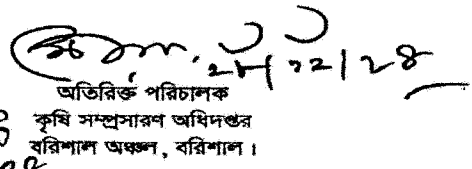 ২৮/১২/২৪
অতিরিক্ত পরিচালক
কৃষি সম্প্রসারণ অধিদপ্তর
বরিশাল অঞ্চল, বরিশাল।